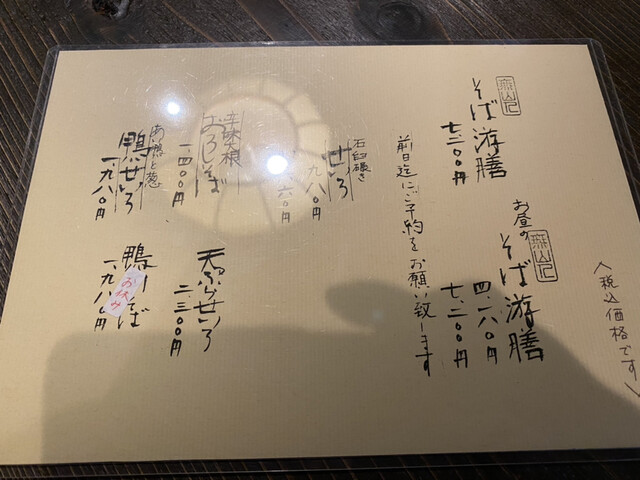 (税込価格です)
無山記
そば游膳
七.二〇〇円
お昼の
無山記
そば游膳
四.一八〇円
七.二〇〇円
前日迄にご予約をお願い致します
石臼碾き
せいろ
九八〇円
おろしそば
一.四〇〇円
天ぷらせいろ
二.三〇〇円
あい鴨と葱
鴨せいろ
一.九八〇円
鴨
そば
お休み
一.九八〇円